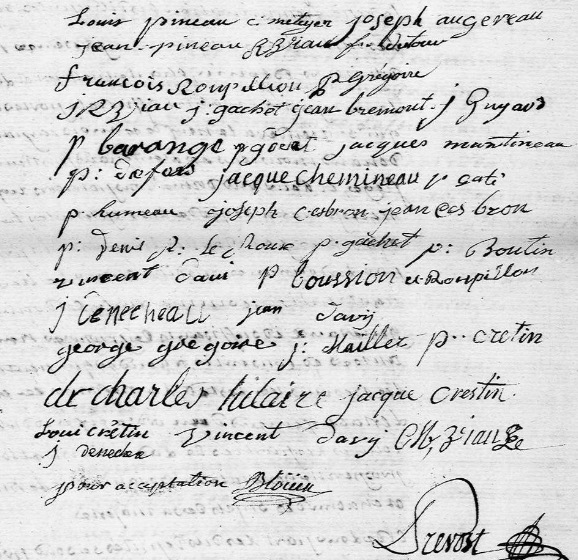 Louis pineau c métayer joseph augereau
jean pineau
françois Roupillion P Grégoire
j. gachot jean bremont. j Guyard
p barange p goret jacques mantineau
p: defois jacque chemineau p cati
p. humeau joseph cesbron jean cesbron
p: denis R. Le Roux p. gachet p: Boutin
vincent Davi P boussion Roupillon
j Cenecheau jean davy
george gregoire j: Maillet p. cretin
dr charles hilaire jacque crestin.
Loui crétin Vincent Davy
j
pour acceptation
Prevost